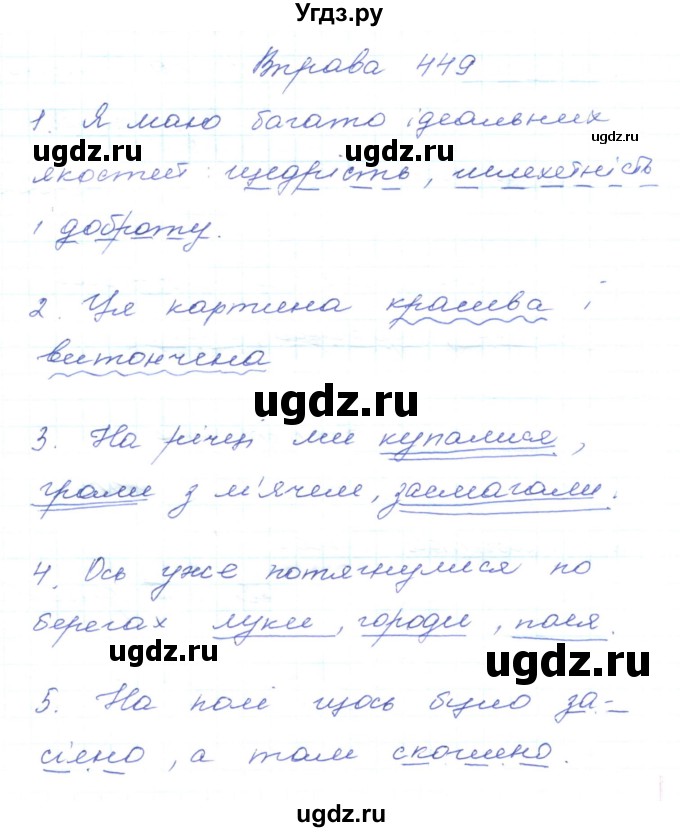 Угдз.ру
Вправа 449
1. Я маю багато ідеальних
якостей: щедрість, шляхетність
і доброту.
2. Ця картина красива і
витончена
3. На річці ми купалися,
грали з м'ячем, засмагали.
4. Ось уже потягнулися по
берегах луки, городи, поля.
5. На полі щось було за-
сіяно, а там скошено.
ugdz.ru
ugdz.ru
ugdz.ru
ugdz.ru
ugdz.ru
ugdz.ru
ugdz.ru
ugdz.ru